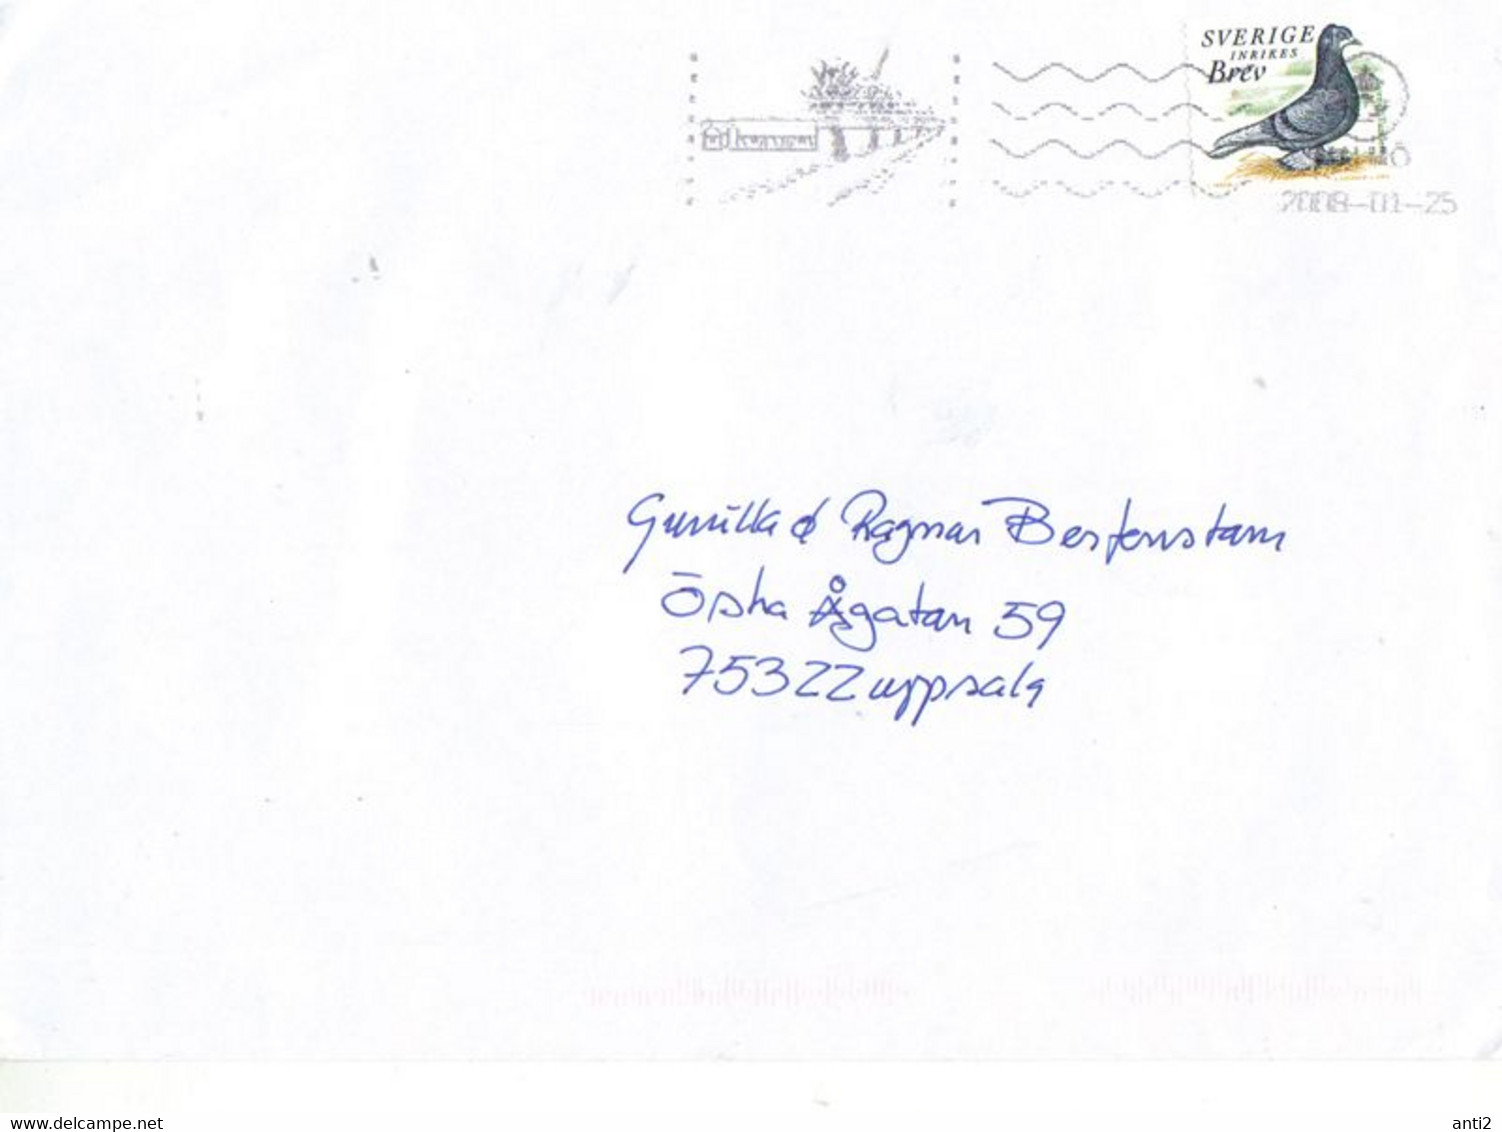 SVERIGE
INRIKES
Brev
2008-01-25
Gunilla & Ragnar Bestenstam
Östra Ågatan 59
75322 uppsala
www.delcampe.net
anti2